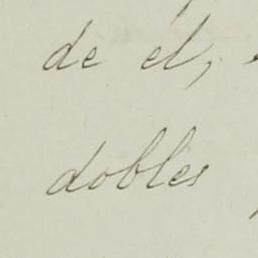 de él,
dobles